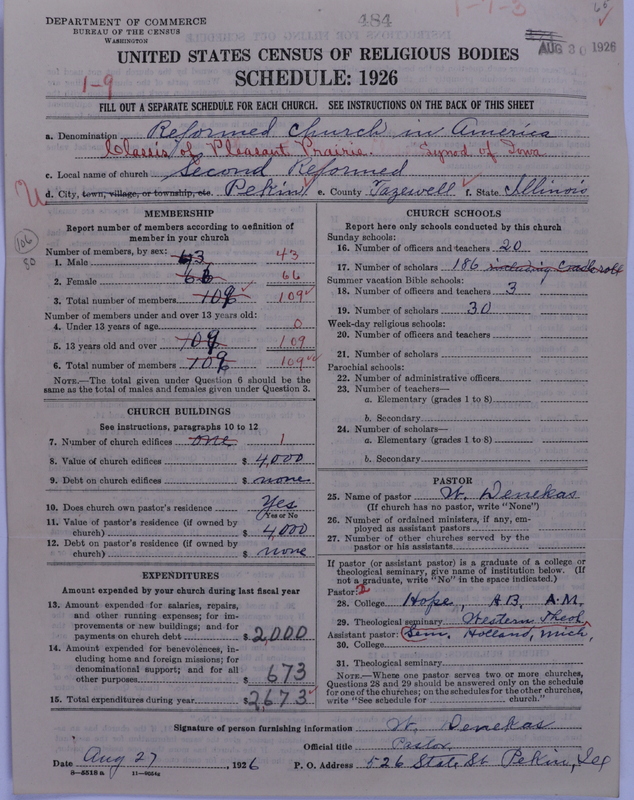 DEPARTMENT OF COMMERCE
BUREAU OF THE CENSUS
WASHINGTON
484
1-7-3
AUG 30 1926
UNITED STATES CENSUS OF RELIGIOUS BODIES
SCHEDULE: 1926
1-9
FILL OUT A SEPARATE SCHEDULE FOR EACH CHURCH. SEE INSTRUCTIONS ON THE BACK OF THIS SHEET
a. Denomination Reformed church in America
Classis of Pleasant Prairie. Synod of Iowa
c. Local name of church Second Reformed
d. City, town, village, or township, etc. Pekin e. County Tazewell f. State Illinois
106
80
MEMBERSHIP
Report number of members according to definition of
member in your church
Number of members, by sex:
1. Male 43 43
2. Female 66 66
3. Total number of members 109 109
Number of members under and over 13 years old:
4. Under 13 years of age 0
5. 13 years old and over 109 109
6. Total number of members 109 109
NOTE.—The total given under Question 6 should be the
same as the total of males and females given under Question 3.
CHURCH BUILDINGS
See instructions, paragraphs 10 to 12
7. Number of church edifices one 1
8. Value of church edifices $ 4,000
9. Debt on church edifices $ none
10. Does church own pastor's residence Yes
Yes or No
11. Value of pastor's residence (if owned by
church) $ 4,000
12. Debt on pastor's residence (if owned by
church) $ none
EXPENDITURES
Amount expended by your church during last fiscal year
13. Amount expended for salaries, repairs,
and other running expenses; for im-
provements or new buildings; and for
payments on church debt $ 2,000
14. Amount expended for benevolences, in-
cluding home and foreign missions; for
denominational support; and for all
other purposes $ 673
15. Total expenditures during year $ 2673
CHURCH SCHOOLS
Report here only schools conducted by this church
Sunday schools:
16. Number of officers and teachers 20
17. Number of scholars 186 including Cradle roll
Summer vacation Bible schools:
18. Number of officers and teachers 3
19. Number of scholars 30
Week-day religious schools:
20. Number of officers and teachers
21. Number of scholars
Parochial schools:
22. Number of administrative officers
23. Number of teachers—
a. Elementary (grades 1 to 8)
b. Secondary
24. Number of scholars—
a. Elementary (grades 1 to 8)
b. Secondary
PASTOR
25. Name of pastor W. Denekas
(If church has no pastor, write "None")
26. Number of ordained ministers, if any, em-
ployed as assistant pastors
27. Number of other churches served by the
pastor or his assistants
If pastor (or assistant pastor) is a graduate of a college or
theological seminary, give name of institution below. (If
not a graduate, write "No" in the space indicated.)
Pastor: 2
28. College Hope, A.B. A.M.
29. Theological seminary Western Theol.
Assistant pastor: Sem. Holland, Mich.
30. College
31. Theological seminary
NOTE.—Where one pastor serves two or more churches,
Questions 28 and 29 should be answered only on the schedule
for one of the churches; on the schedules for the other churches,
write "See schedule for church."
Signature of person furnishing information W. Denekas
Official title Pastor
Date Aug 27, 1926 P. O. Address 526 State St Pekin, Ill
8—5518 a 11—9054a